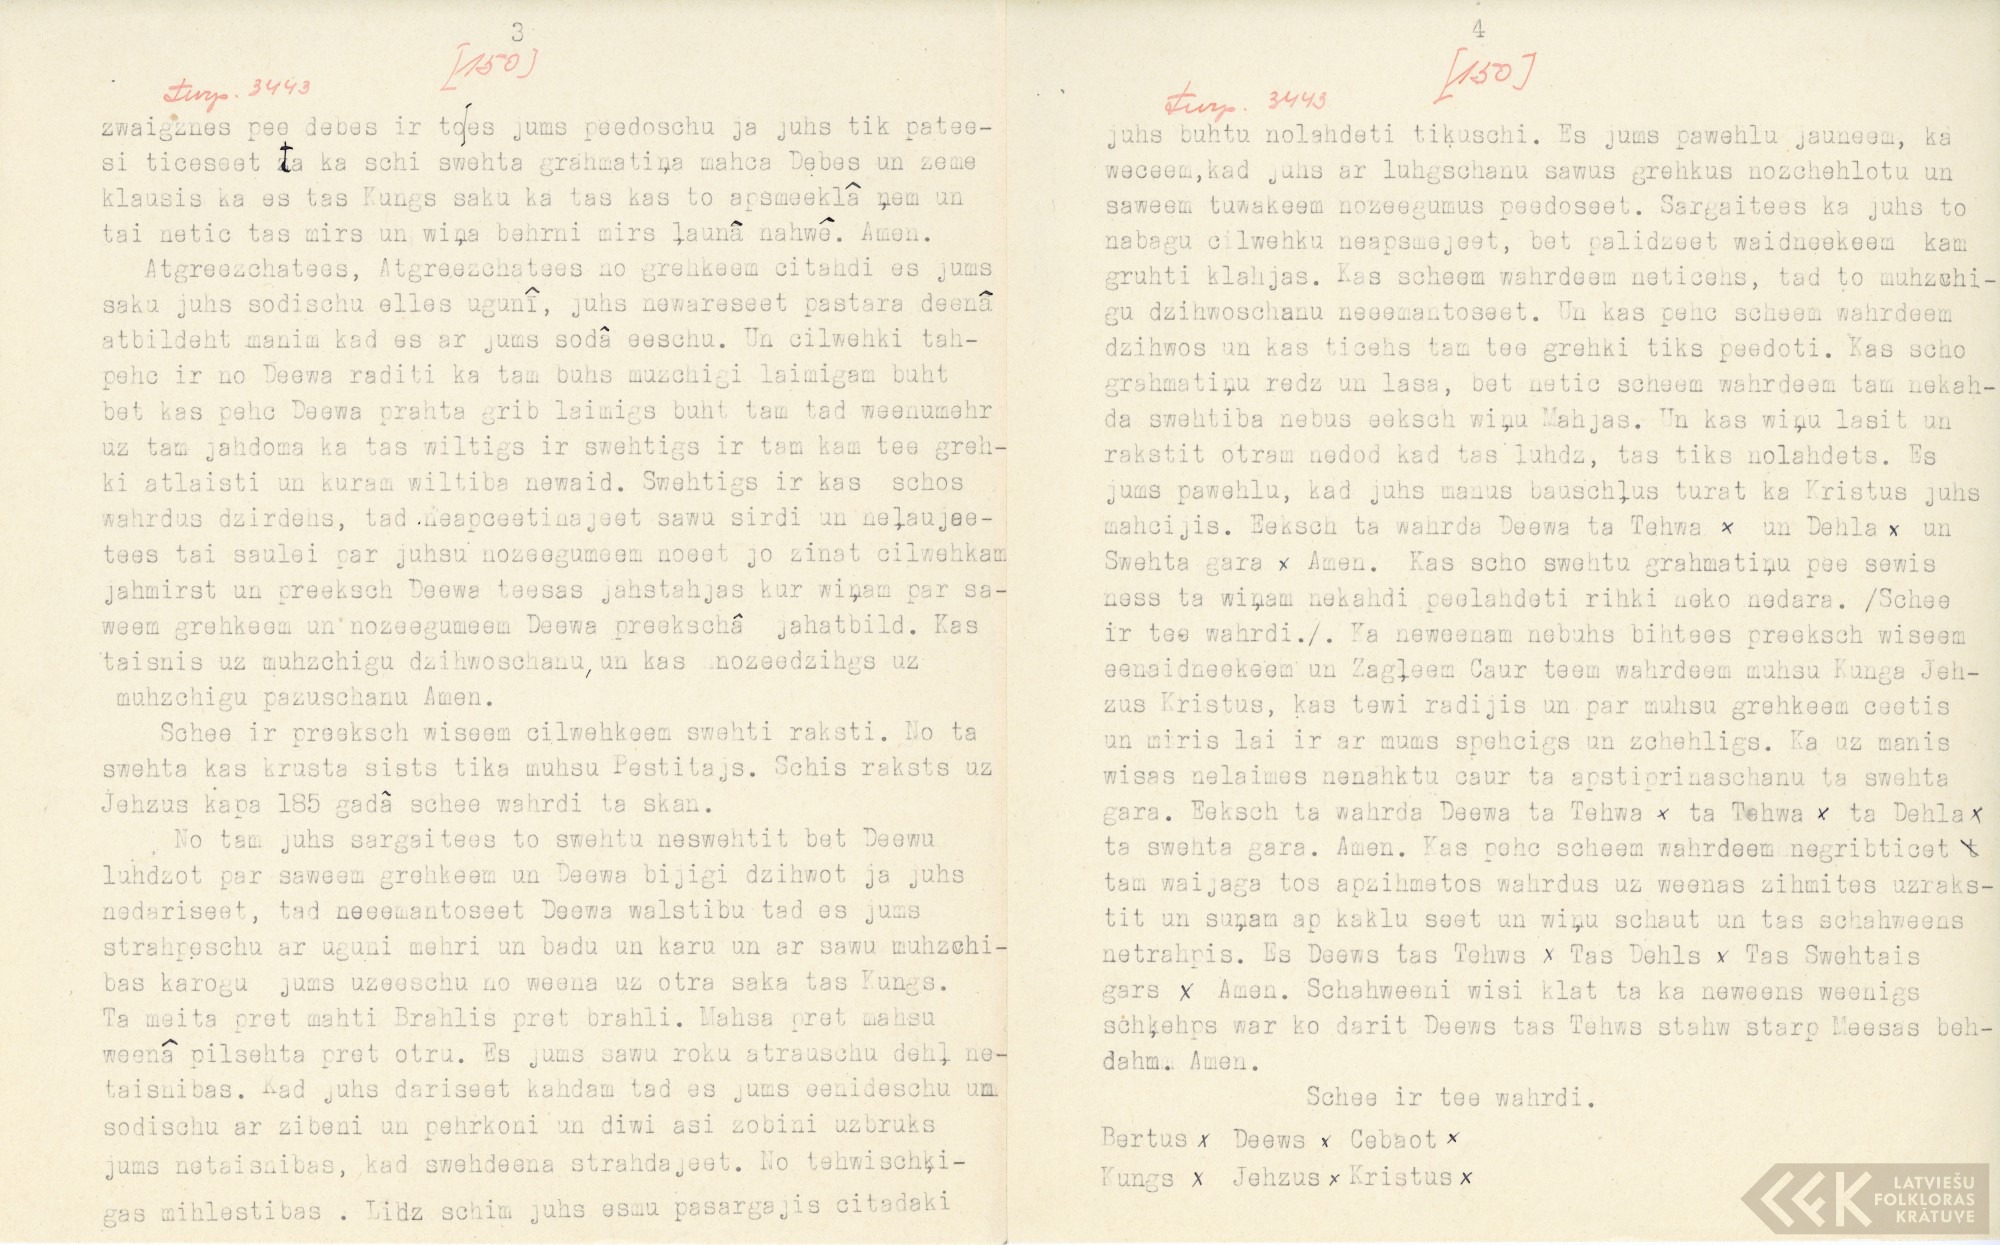 3
[150]
turp. 3443
zwaigznes pee debes ir toes jums peedoschu ja juhs tik patee-
si ticeseet ta ka schi swehta grahmatiņa mahca Debes un zeme
klausis ka es tas Kungs saku ka tas kas to apsmeeklâ ņem un
tai netic tas mirs un wiņa behrni mirs ļaunâ nahwê. Amen.
Atgreezchatees, Atgreezchatees no grehkeem citahdi es jums
saku juhs sodischu elles ugunî, juhs newareseet pastara deenâ
atbildeht manim kad es ar jums sodâ eeschu. Un cilwehki tah-
pehc ir no Deewa raditi ka tam buhs muzchigi laimigam buht
bet kas pehc Deewa prahta grib laimigs buht tam tad weenumehr
uz tam jahdoma ka tas wiltigs ir swehtigs ir tam kam tee greh-
ki atlaisti un kuram wiltiba newaid. Swehtigs ir kas schos
wahrdus dzirdehs, tad neapceetinajeet sawu sirdi un neļaujee-
tees tai saulei par juhsu nozeegumeem noeet jo zinat cilwehkam
jahmirst un preeksch Deewa teesas jahstahjas kur wiņam par sa-
weem grehkeem un nozeegumeem Deewa preekschâ jahatbild. Kas
taisnis uz muhzchigu dzihwoschanu, un kas nozeedzihgs uz
muhzchigu pazuschanu Amen.
Schee ir preeksch wiseem cilwehkeem swehti raksti. No ta
swehta kas krusta sists tika muhsu Pestitajs. Schis raksts uz
Jehzus kapa 185 gadâ schee wahrdi ta skan.
No tam juhs sargaitees to swehtu neswehtit bet Deewu
luhdzot par saweem grehkeem un Deewa bijigi dzihwot ja juhs
nedariseet, tad neeemantoseet Deewa walstibu tad es jums
strahpeschu ar uguni mehri un badu un karu un ar sawu muhzchi-
bas karogu jums uzeeschu no weena uz otra saka tas Kungs.
Ta meita pret mahti Brahlis pret brahli. Mahsa pret mahsu
weenâ pilsehta pret otru. Es jums sawu roku atrauschu dehļ ne-
taisnibas. Kad juhs dariseet kahdam tad es jums eenideschu um
sodischu ar zibeni un pehrkoni un diwi asi zobini uzbruks
jums netaisnibas, kad swehdeena strahdajeet. No tehwischķi-
gas mihlestibas . Lidz schim juhs esmu pasargajis citadaki
4
[150]
turp. 3443
juhs buhtu nolahdeti tikuschi. Es jums pawehlu jauneem, ka
weceem,kad juhs ar luhgschanu sawus grehkus nozchehlotu un
saweem tuwakeem nozeegumus peedoseet. Sargaitees ka juhs to
nabagu cilwehku neapsmejeet, bet palidzeet waidneekeem kam
gruhti klahjas. Kas scheem wahrdeem neticehs, tad to muhzchi-
gu dzihwoschanu neeemantoseet. Un kas pehc scheem wahrdeem
dzihwos un kas ticehs tam tee grehki tiks peedoti. Kas scho
grahmatiņu redz un lasa, bet netic scheem wahrdeem tam nekah-
da swehtiba nebus eeksch wiņu Mahjas. Un kas wiņu lasit un
rakstit otram nedod kad tas luhdz, tas tiks nolahdets. Es
jums pawehlu, kad juhs manus bauschļus turat ka Kristus juhs
mahcijis. Eeksch ta wahrda Deewa ta Tehwa x un Dehla x un
Swehta gara x Amen. Kas scho swehtu grahmatiņu pee sewis
ness ta wiņam nekahdi peelahdeti rihki neko nedara. /Schee
ir tee wahrdi./. Ka neweenam nebuhs bihtees preeksch wiseem
eenaidneekeem un Zagļeem Caur teem wahrdeem muhsu Kunga Jeh-
zus Kristus, kas tewi radijis un par muhsu grehkeem ceetis
un miris lai ir ar mums spehcigs un zchehligs. Ka uz manis
wisas nelaimes nenahktu caur ta apstiprinaschanu ta swehta
gara. Eeksch ta wahrda Deewa ta Tehwa x ta Tehwa x ta Dehla x
ta swehta gara. Amen. Kas pehc scheem wahrdeem negribticet
tam waijaga tos apzihmetos wahrdus uz weenas zihmites uzraks-
tit un suņam ap kaklu seet un wiņu schaut un tas schahweens
netrahpis. Es Deews tas Tehws x Tas Dehls x Tas Swehtais
gars x Amen. Schahweeni wisi klat ta ka neweens weenigs
schķehps war ko darit Deews tas Tehws stahw starp Meesas beh-
dahm. Amen.
Schee ir tee wahrdi.
Bertus x Deews x Cebaot x
Kungs x Jehzus x Kristus x
LATVIEŠU
FOLKLORAS
KRĀTUVE